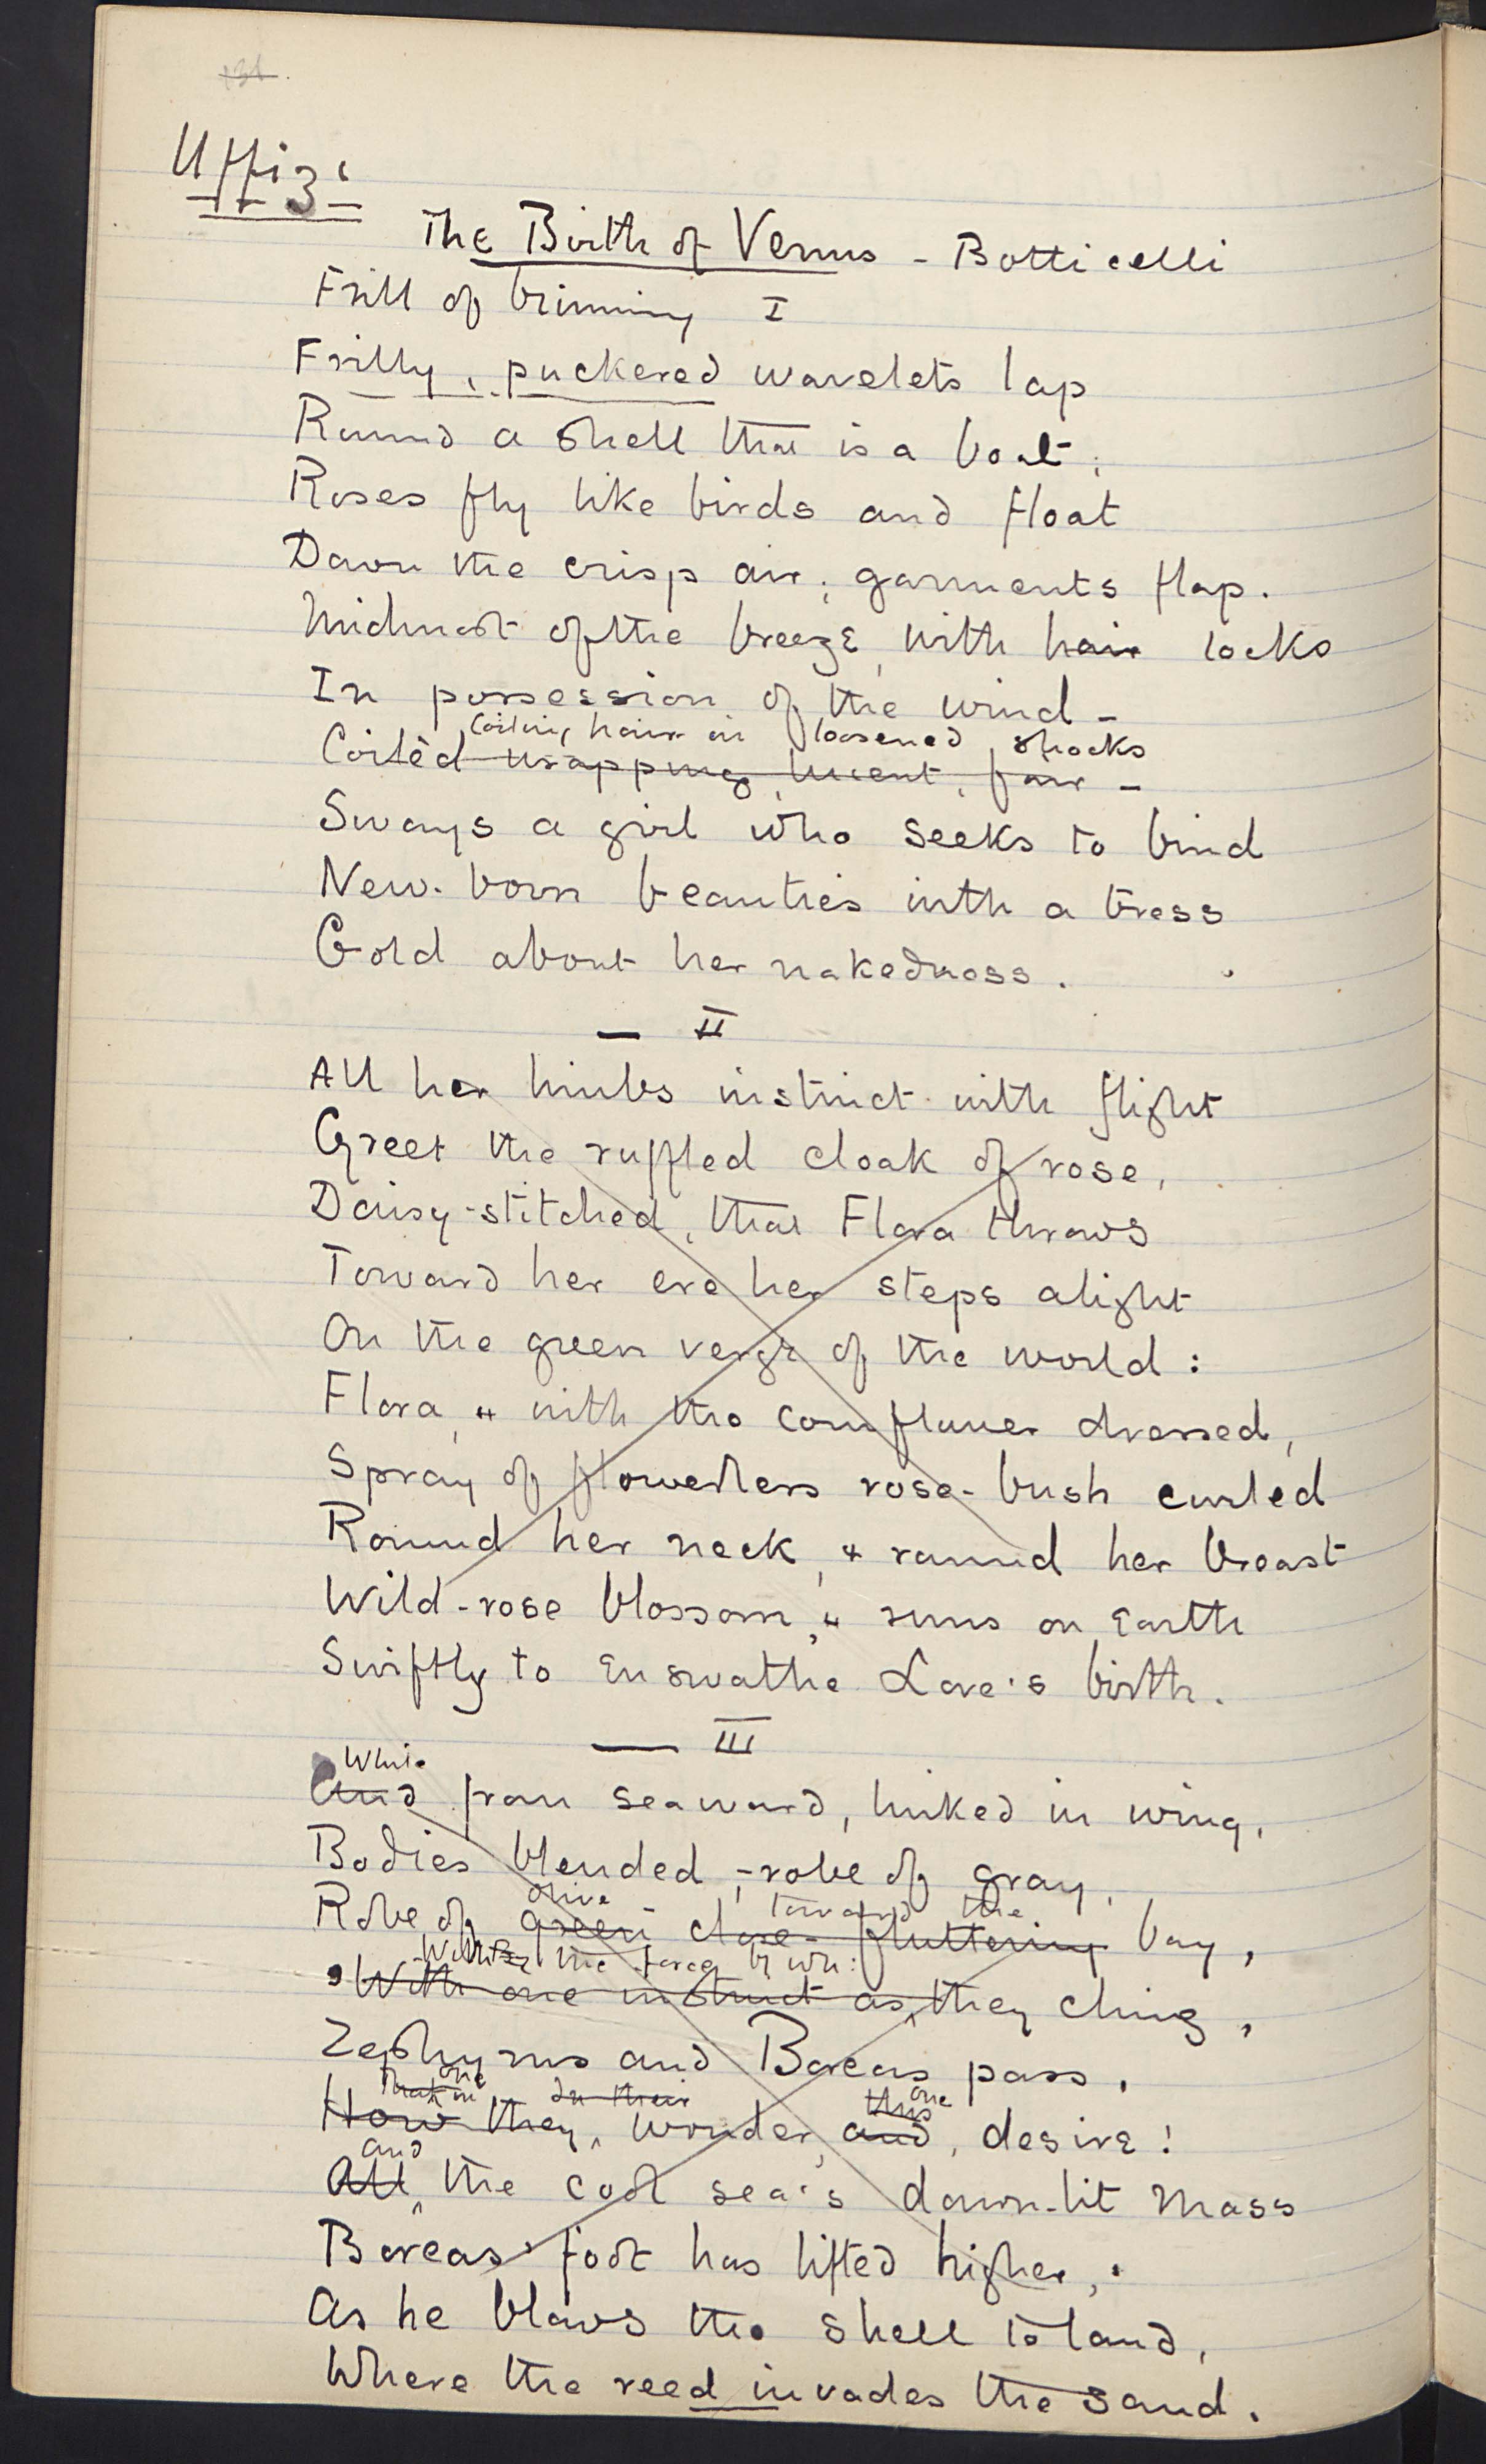 Uffizi
The Birth of Venus - Botticelli
Frill of brimming I
Frilly, puckered wavelets lap
Round a shell that is a boat;
Roses fly like birds and float
Down the crisp air; garments flap.
Midmost of the breeze, with hair locks
In possession of the wind -
Coiling hair in loosened shocks
Coiled wrapping, lucent, fair -
Sways a girl who seeks to bind
New-born beauties with a tress
Gold about her nakedness.
— II
All her limbs instinct with flight
Greet the ruffled cloak of rose,
Daisy-stitched, that Flora throws
Toward her ere her steps alight
On the green verge of the world:
Flora, & with the cornflower dressed,
Spray of flowerless rose-bush curled
Round her neck, & round her breast
Wild-rose blossom, & runs on Earth
Swiftly to enswathe Love's birth.
— III
While
And from seaward, linked in wing,
Bodies blended, - robe of gray,
olive toward the
Robe of green close-fluttering bay,
the force by wh:
With one instinct as, they cling,
Zephyrus and Boreas pass,
one In their this one
How they, wonder, and, desire!
and
All, the cool sea's dawn-lit mass
Boreas' foot has lifted higher,
As he blows the shell to land,
Where the reed invades the sand.